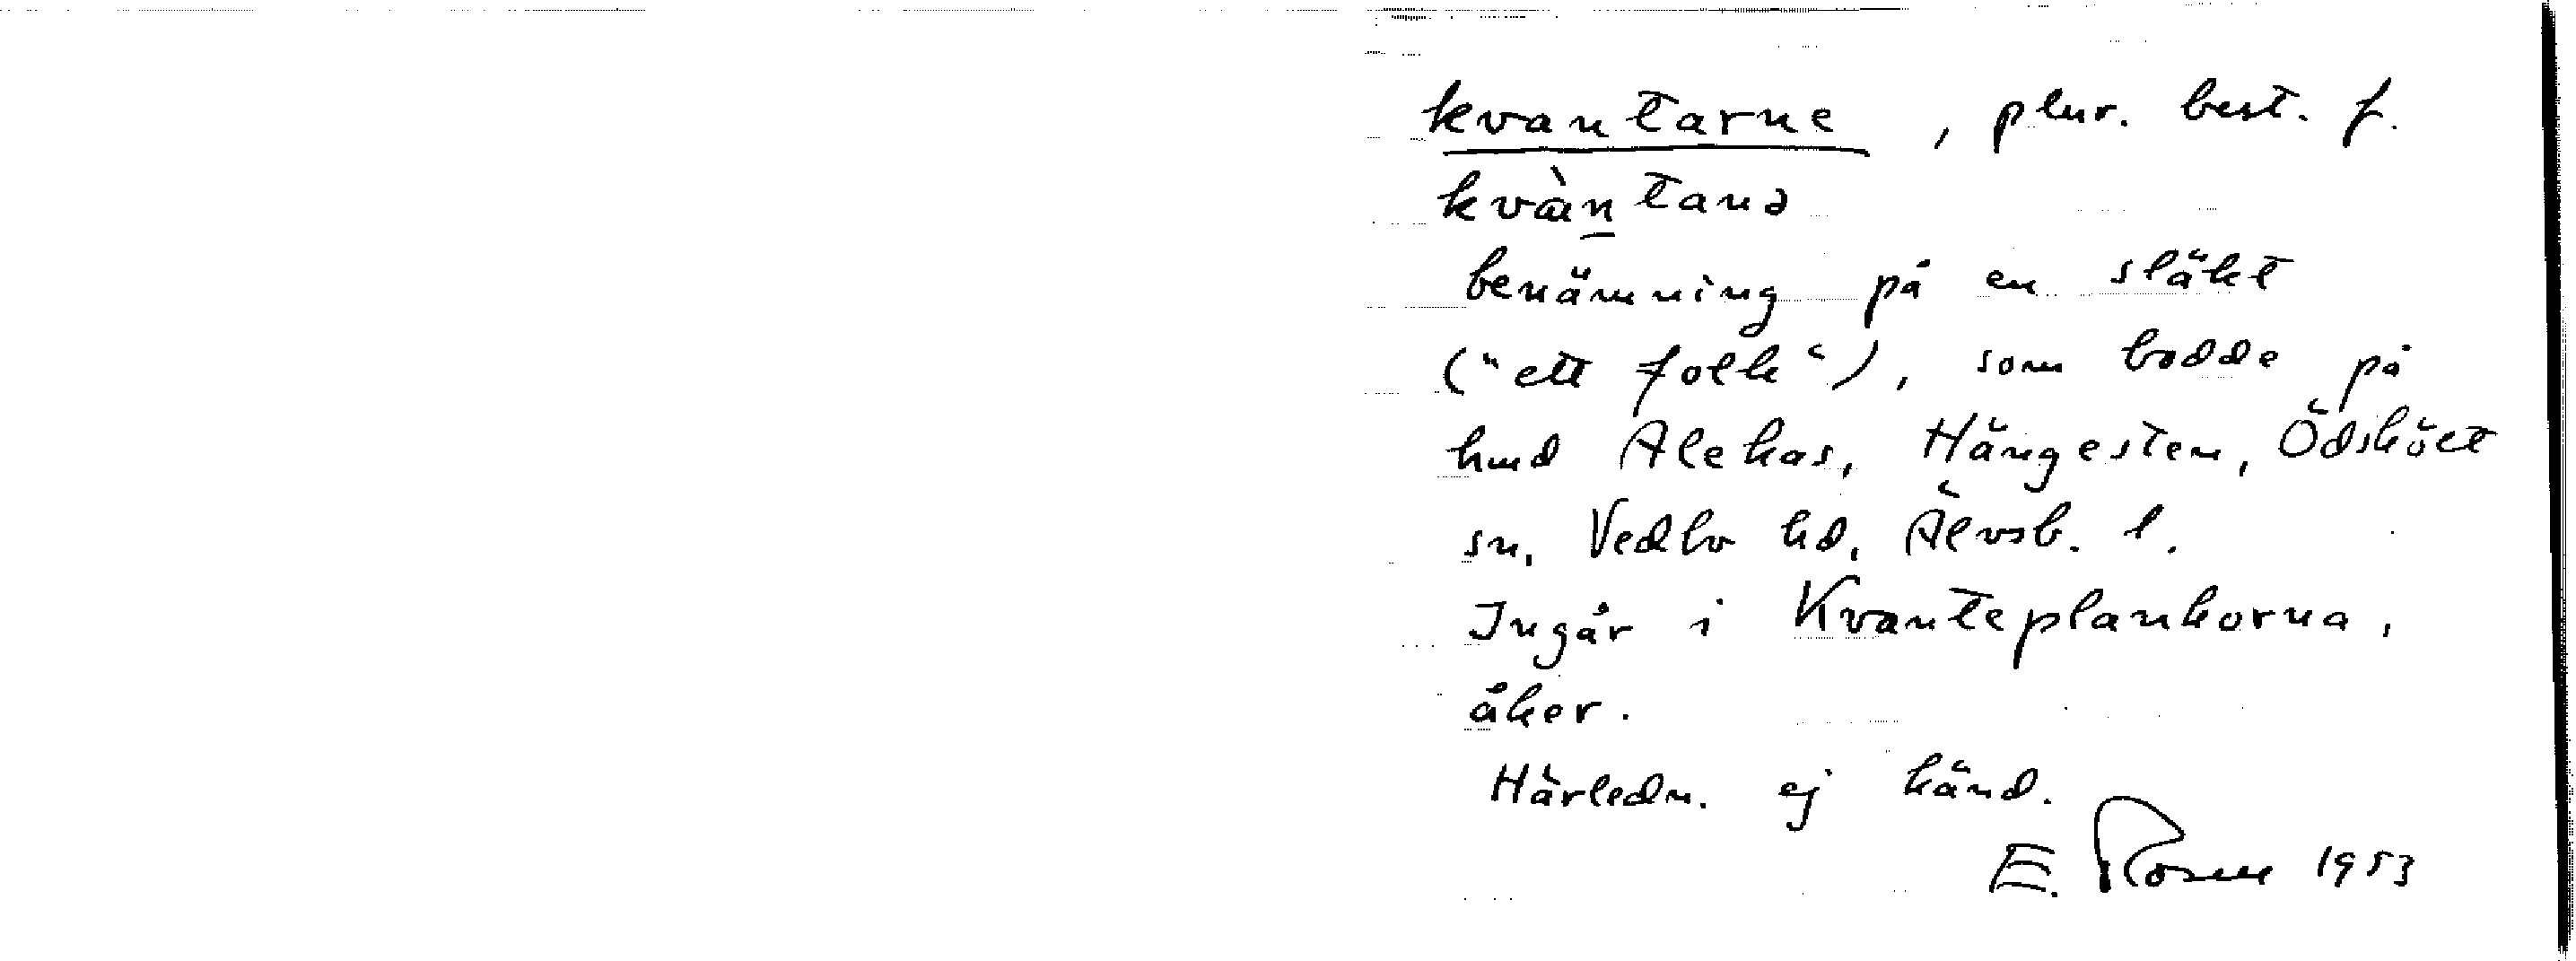 kvantarne, plur. best. f.
kvàntanə
benämning på en släkt
("ett folk"), som bodde på
hmd Alekas, Hängesten, Ödsköłt
sn, Vedbo hd, Älvsb. l.
Ingår i Kvanteplankorna,
åker.
Härledn. ej känd.
E. Rosell 1953